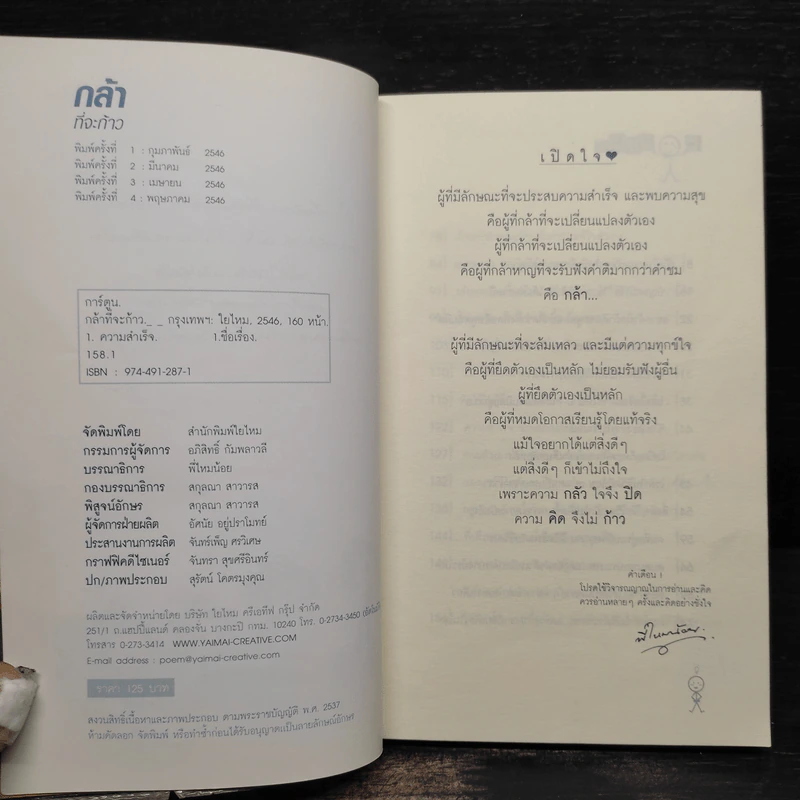 กล้า
ที่จะก้าว
พิมพ์ครั้งที่ 1 : กุมภาพันธ์ 2546
พิมพ์ครั้งที่ 2 : มีนาคม 2546
พิมพ์ครั้งที่ 3 : เมษายน 2546
พิมพ์ครั้งที่ 4 : พฤษภาคม 2546
การ์ตูน.
กล้าที่จะก้าว._ _ กรุงเทพฯ: ใยไหม, 2546, 160 หน้า.
1. ความสำเร็จ. 1.ชื่อเรื่อง.
158.1
ISBN : 974-491-287-1
จัดพิมพ์โดย สำนักพิมพ์ใยไหม
กรรมการผู้จัดการ อภิสิทธิ์ กัมพลาวลี
บรรณาธิการ พี่ไหมน้อย
กองบรรณาธิการ สกุลณา สาวารส
พิสูจน์อักษร สกุลณา สาวารส
ผู้จัดการฝ่ายผลิต อัศนัย อยู่ปราโมทย์
ประสานงานการผลิต จันทร์เพ็ญ ศรวิเศษ
กราฟฟิคดีไซเนอร์ จันทรา สุขศรีอินทร์
ปก/ภาพประกอบ สุรัตน์ โคตรมุงคุณ
ผลิตและจัดจำหน่ายโดย บริษัท ใยไหม ครีเอทีฟ กรุ๊ป จำกัด
251/1 ถ.แฮปปี้แลนด์ คลองจั่น บางกะปิ กทม. 10240 โทร. 0-2734-3450
โทรสาร 0-273-3414 WWW.YAIMAI-CREATIVE.COM
E-mail address : poem@yaimai-creative.com
ราคา 125 บาท
สงวนสิทธิ์เนื้อหาและภาพประกอบ ตามพระราชบัญญัติ พ.ศ. 2537
ห้ามคัดลอก จัดพิมพ์ หรือทำซ้ำก่อนได้รับอนุญาตเป็นลายลักษณ์อักษร
เปิดใจ❤
ผู้ที่มีลักษณะที่จะประสบความสำเร็จ และพบความสุข
คือผู้ที่กล้าที่จะเปลี่ยนแปลงตัวเอง
ผู้ที่กล้าที่จะเปลี่ยนแปลงตัวเอง
คือผู้ที่กล้าหาญที่จะรับฟังคำติมากกว่าคำชม
คือ กล้า...
ผู้ที่มีลักษณะที่จะล้มเหลว และมีแต่ความทุกข์ใจ
คือผู้ที่ยึดตัวเองเป็นหลัก ไม่ยอมรับฟังผู้อื่น
ผู้ที่ยึดตัวเองเป็นหลัก
คือผู้ที่หมดโอกาสเรียนรู้โดยแท้จริง
แม้ใจอยากได้แต่สิ่งดีๆ
แต่สิ่งดีๆ ก็เข้าไม่ถึงใจ
เพราะความ กลัว ใจจึง ปิด
ความ คิด จึงไม่ ก้าว
คำเตือน !
โปรดใช้วิจารณญาณในการอ่านและคิด
ควรอ่านหลายๆ ครั้งและคิดอย่างชั่งใจ
พี่ไหมน้อย.